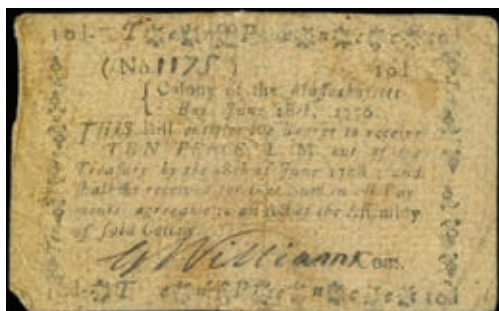 10d-T e n P e n c e 10d
(No. 1175) 10d
{ Colony of the Massachusetts
Bay, June 18th, 1776.
THIS Bill entitles the Bearer to receive
TEN PENCE L. M. out of the
Treasury by the 18th of June 1778 and
shall be received for that Sum in all Pay
ments, agreeable to an Act of the Assembly
of said Colony
G Williams Com.
10d-T e n P e n c e 10d